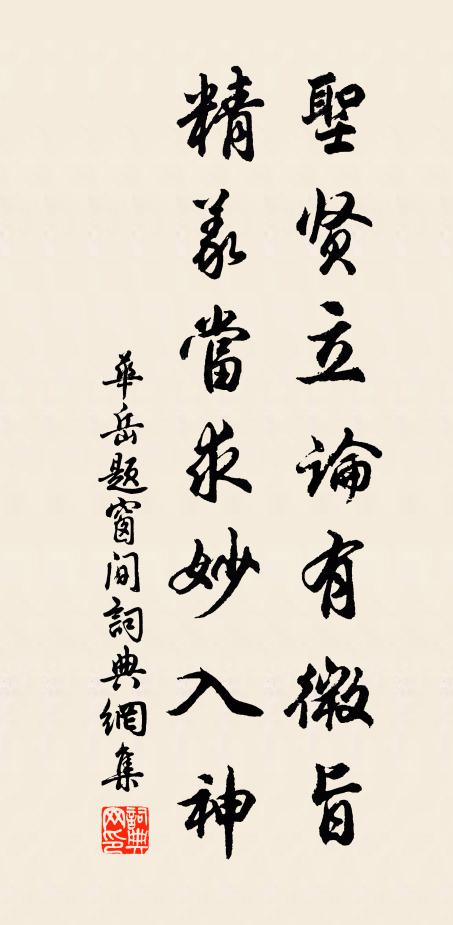 聖贤立論有微旨
精義當求妙入神
華岳題窗间詞典網集
詞典网印